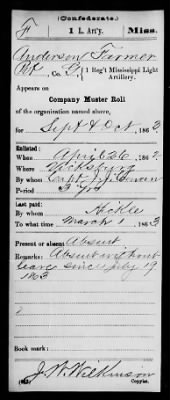 (Confederate.)
F 1 L. Art'y. Miss.
Anderson Farmer
Pvt, Co. G, 1 Reg't Mississippi Light Artillery.
Appears on
Company Muster Roll
of the organization named above,
for Sept & Oct, 1863.
Enlisted:
When April 26, 186
Where Vicksburg
By whom Capt. J. J. Cowan
Period 3 yrs
Last paid:
By whom Hickle
To what time March 1, 1863
Present or absent Absent
Remarks: Absent without
leave since July 19
1863
Book mark:
J. W. Wilkinson
Copyist.